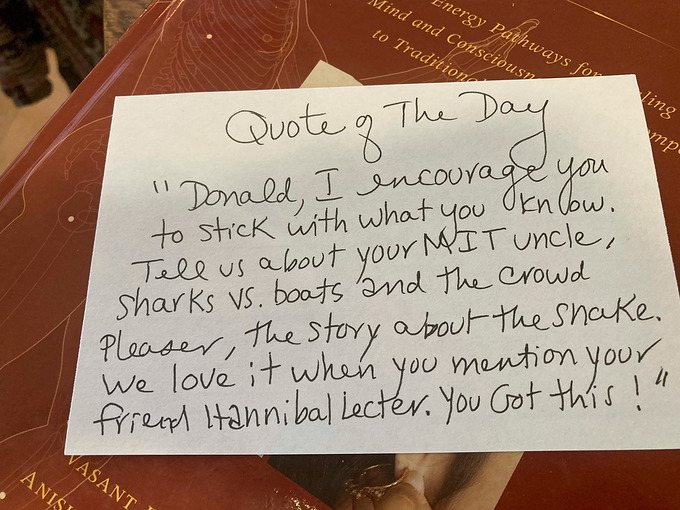 Energy Pathways for
Mind and Consciousn
to Traditiona
ling
mp
Quote of The Day
"Donald, I encourage you
to stick with what you know.
Tell us about your MIT uncle,
sharks vs. boats and the crowd
Pleaser, the story about the snake.
We love it when you mention your
friend Hannibal Lecter. You Got this!"
VASANT
ANIS